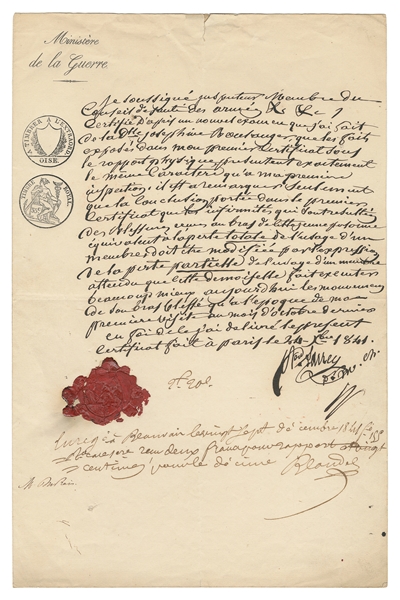 Ministère
de la Guerre
TIMBRE A L'EXTRAORD.
OISE.
TIMBRE ROYAL
Je soussigné, inspecteur Membre du
Conseil de Santé des armées &c &c
Certifie D'après un nouvel examen que j'ai fait
de la Dlle Joséphine Boulanger, que les faits
exposés dans mon premier certificat sous
le rapport physique présentent exactement
le même Caractère qu'à ma première
inspection; il est à remarquer Seulement
que la conclusion portée dans le premier
Certificat que les infirmités qui
des Blessures au bras de cette jeune personne
équivalent à la perte totale de l'usage d'un
membre doit être modifiée par l'expression
de la perte partielle de l'usage d'un membre
attendu que cette demoiselle fait exécuter
beaucoup mieux aujourd'hui les mouvemens
de son bras blessé qu'à l'époque de ma
première visite au mois d'octobre dernier
en foi de ce j'ai délivré le present
certificat fait à Paris le 24 1841.
Bon Larrey
Enregé à Beauvais le vingt sept décembre 1841
reçu deux francs vingt
centimes pour le décime Blondel